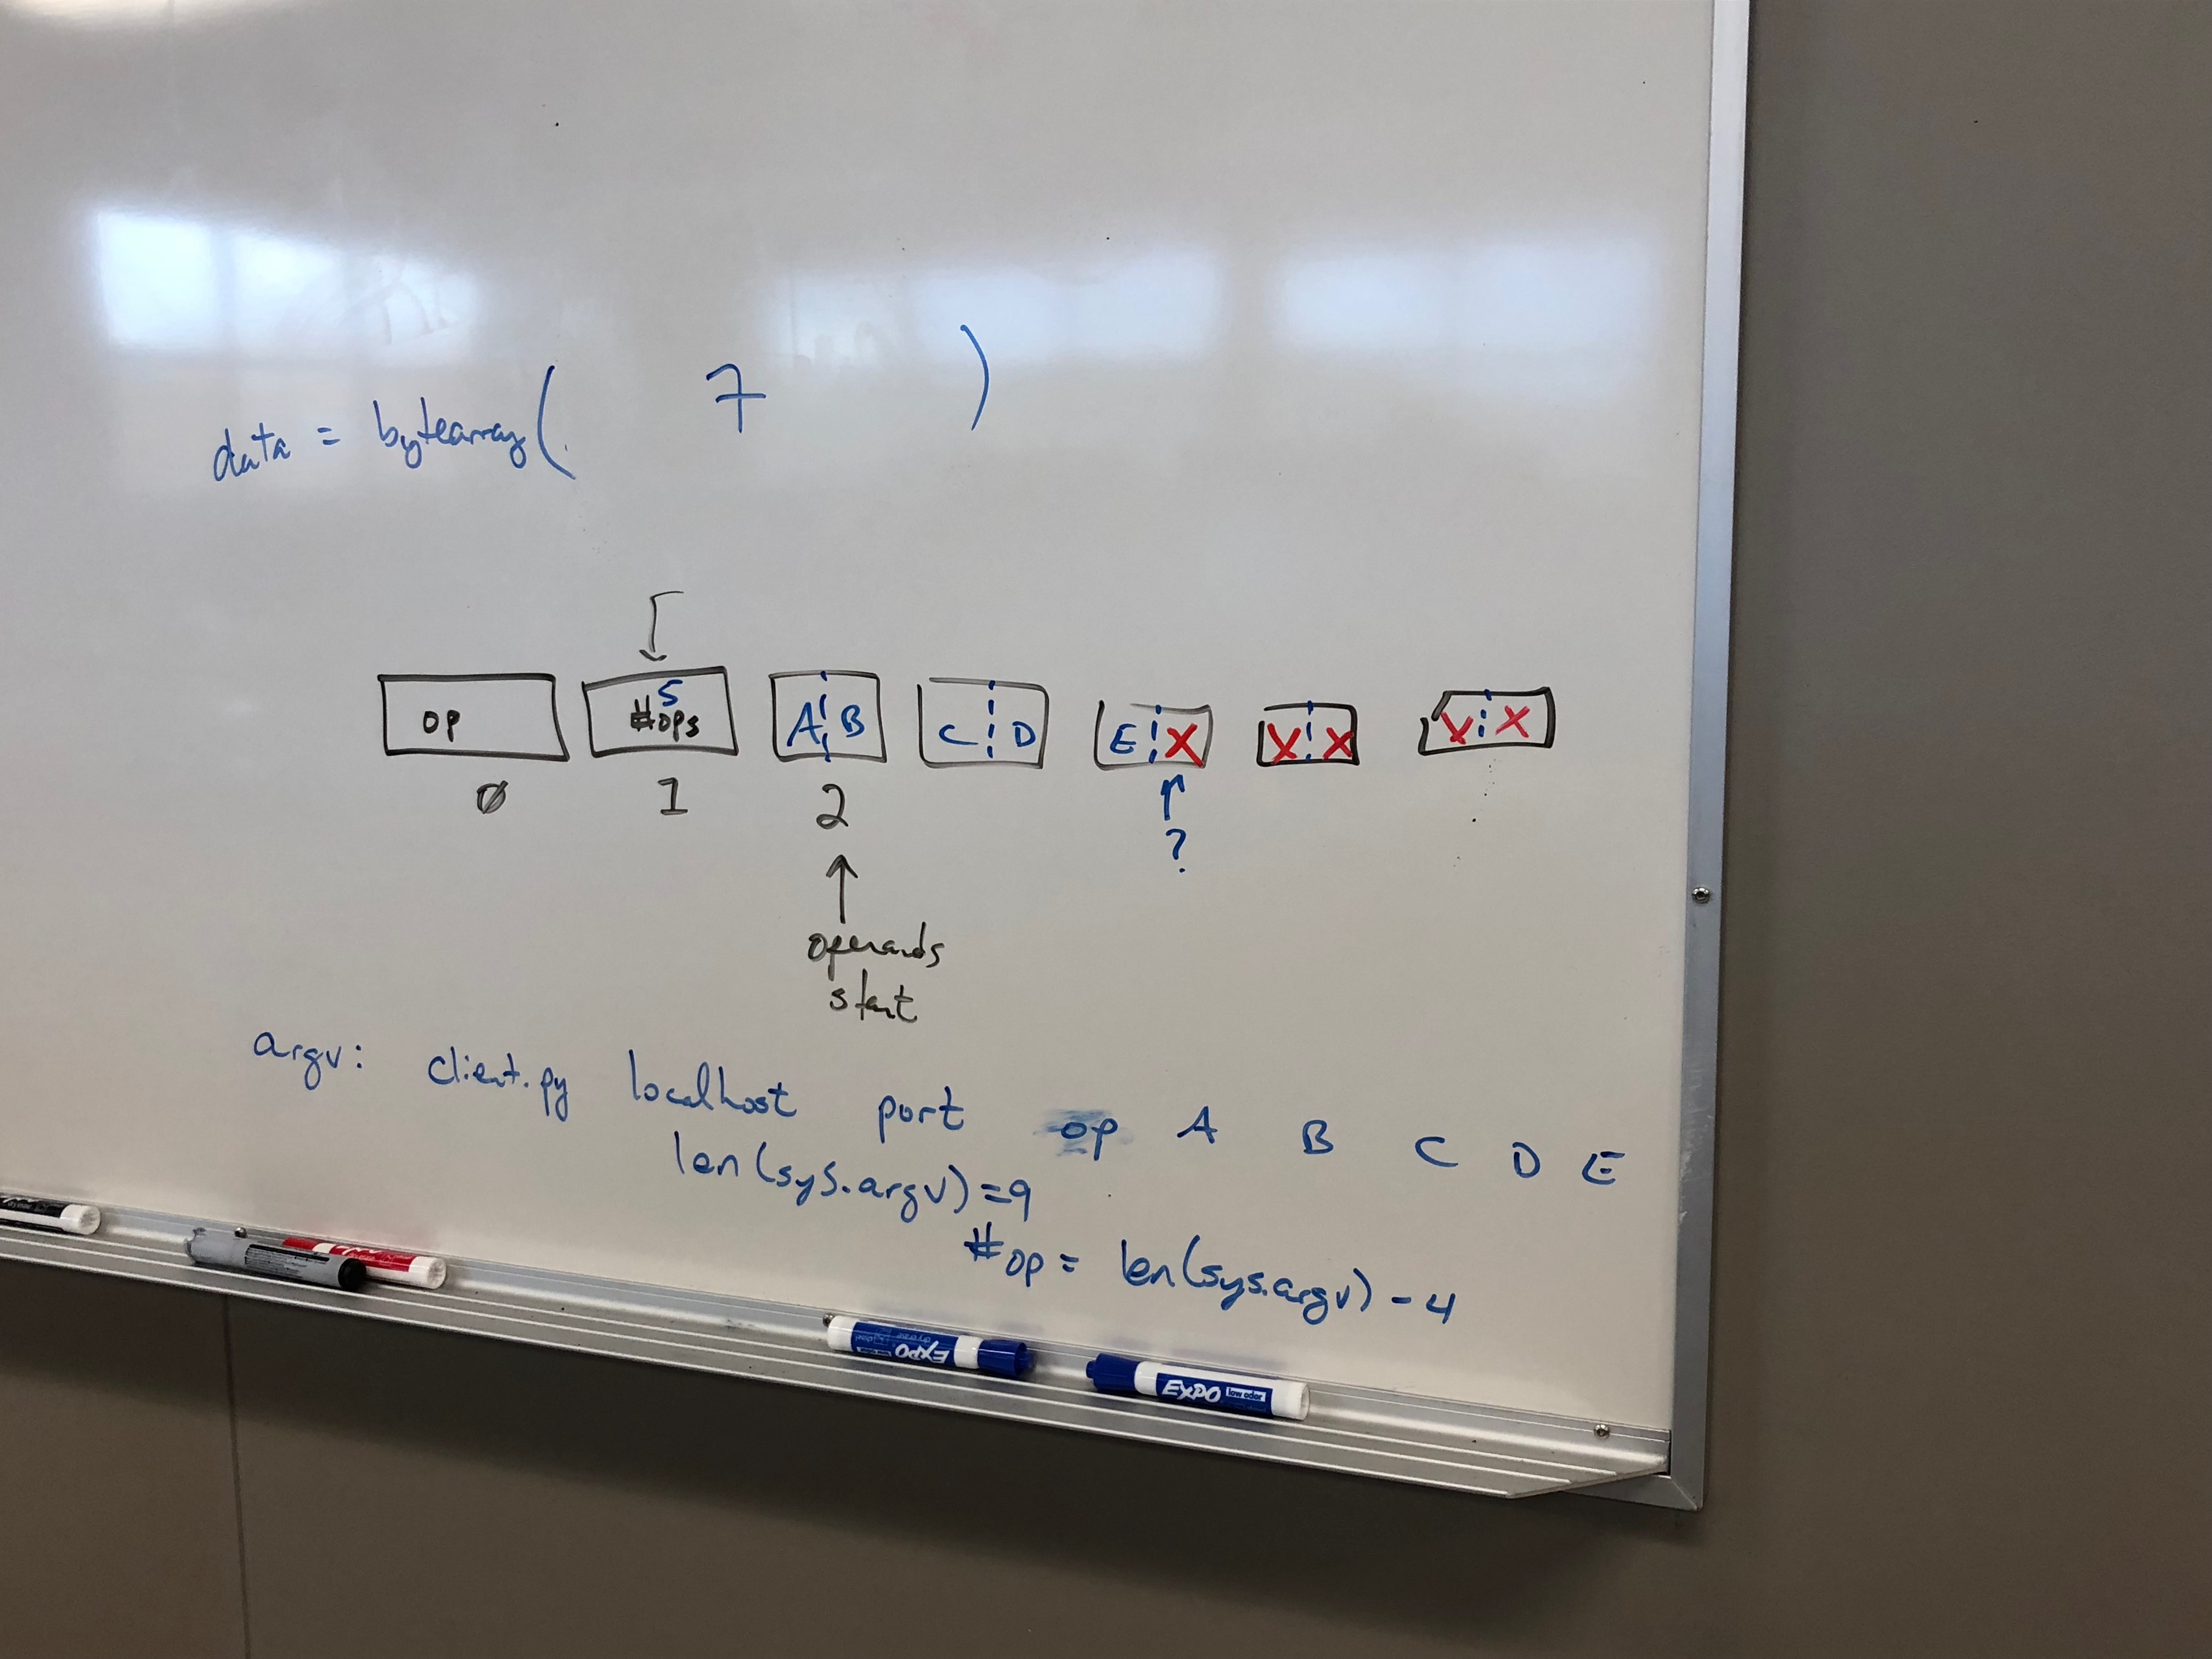 data = bytearray( 7 )
op #ops 5 A B C D E X X X X X
0 1 2
?
operands
start
argv: client.py localhost port op A B C D E
len(sys.argv)=9
#op = len(sys.argv) - 4
EXPO
EXPO low odor